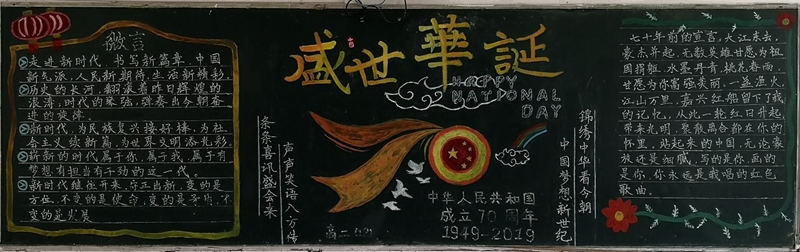 微言
走进新时代,书写新篇章,中国
新气派,人民新期待,生活新精彩。
历史的长河,翻滚着昨日辉煌的
浪涛,时代的琴弦,弹奏出今朝奋
进的旋律。
新时代,为民族复兴接好棒,为社
会主义续新篇,为世界文明添光彩。
崭新的时代属于你,属于我,属于有
梦想有担当有干劲的这一代。
新时代继往开来,守正出新,变的是
方位,不变的是使命,变的是
不变的是
条条喜讯盛会来
声声笑语八方传
盛世華誕
HAPPY
NATIONAL
DAY
中华人民共和国
成立70周年
1949-2019
高二(12)
锦绣中华看今朝
中国梦想新世纪
七十年前的宣言,大江东去,
豪杰并起,无数英雄甘愿为祖
国捐躯,水墨丹青,桃花春雨,
甘愿为你富强美丽,一盏渔火,
江山万里,嘉兴红船留下了我
的记忆,从此一轮红日升起,
带来光明,聚散离合都在你的
怀里,站起来的中国,无论豪
放还是细腻,写的是你,画的
是你,你永远是我唱的红色
歌曲。